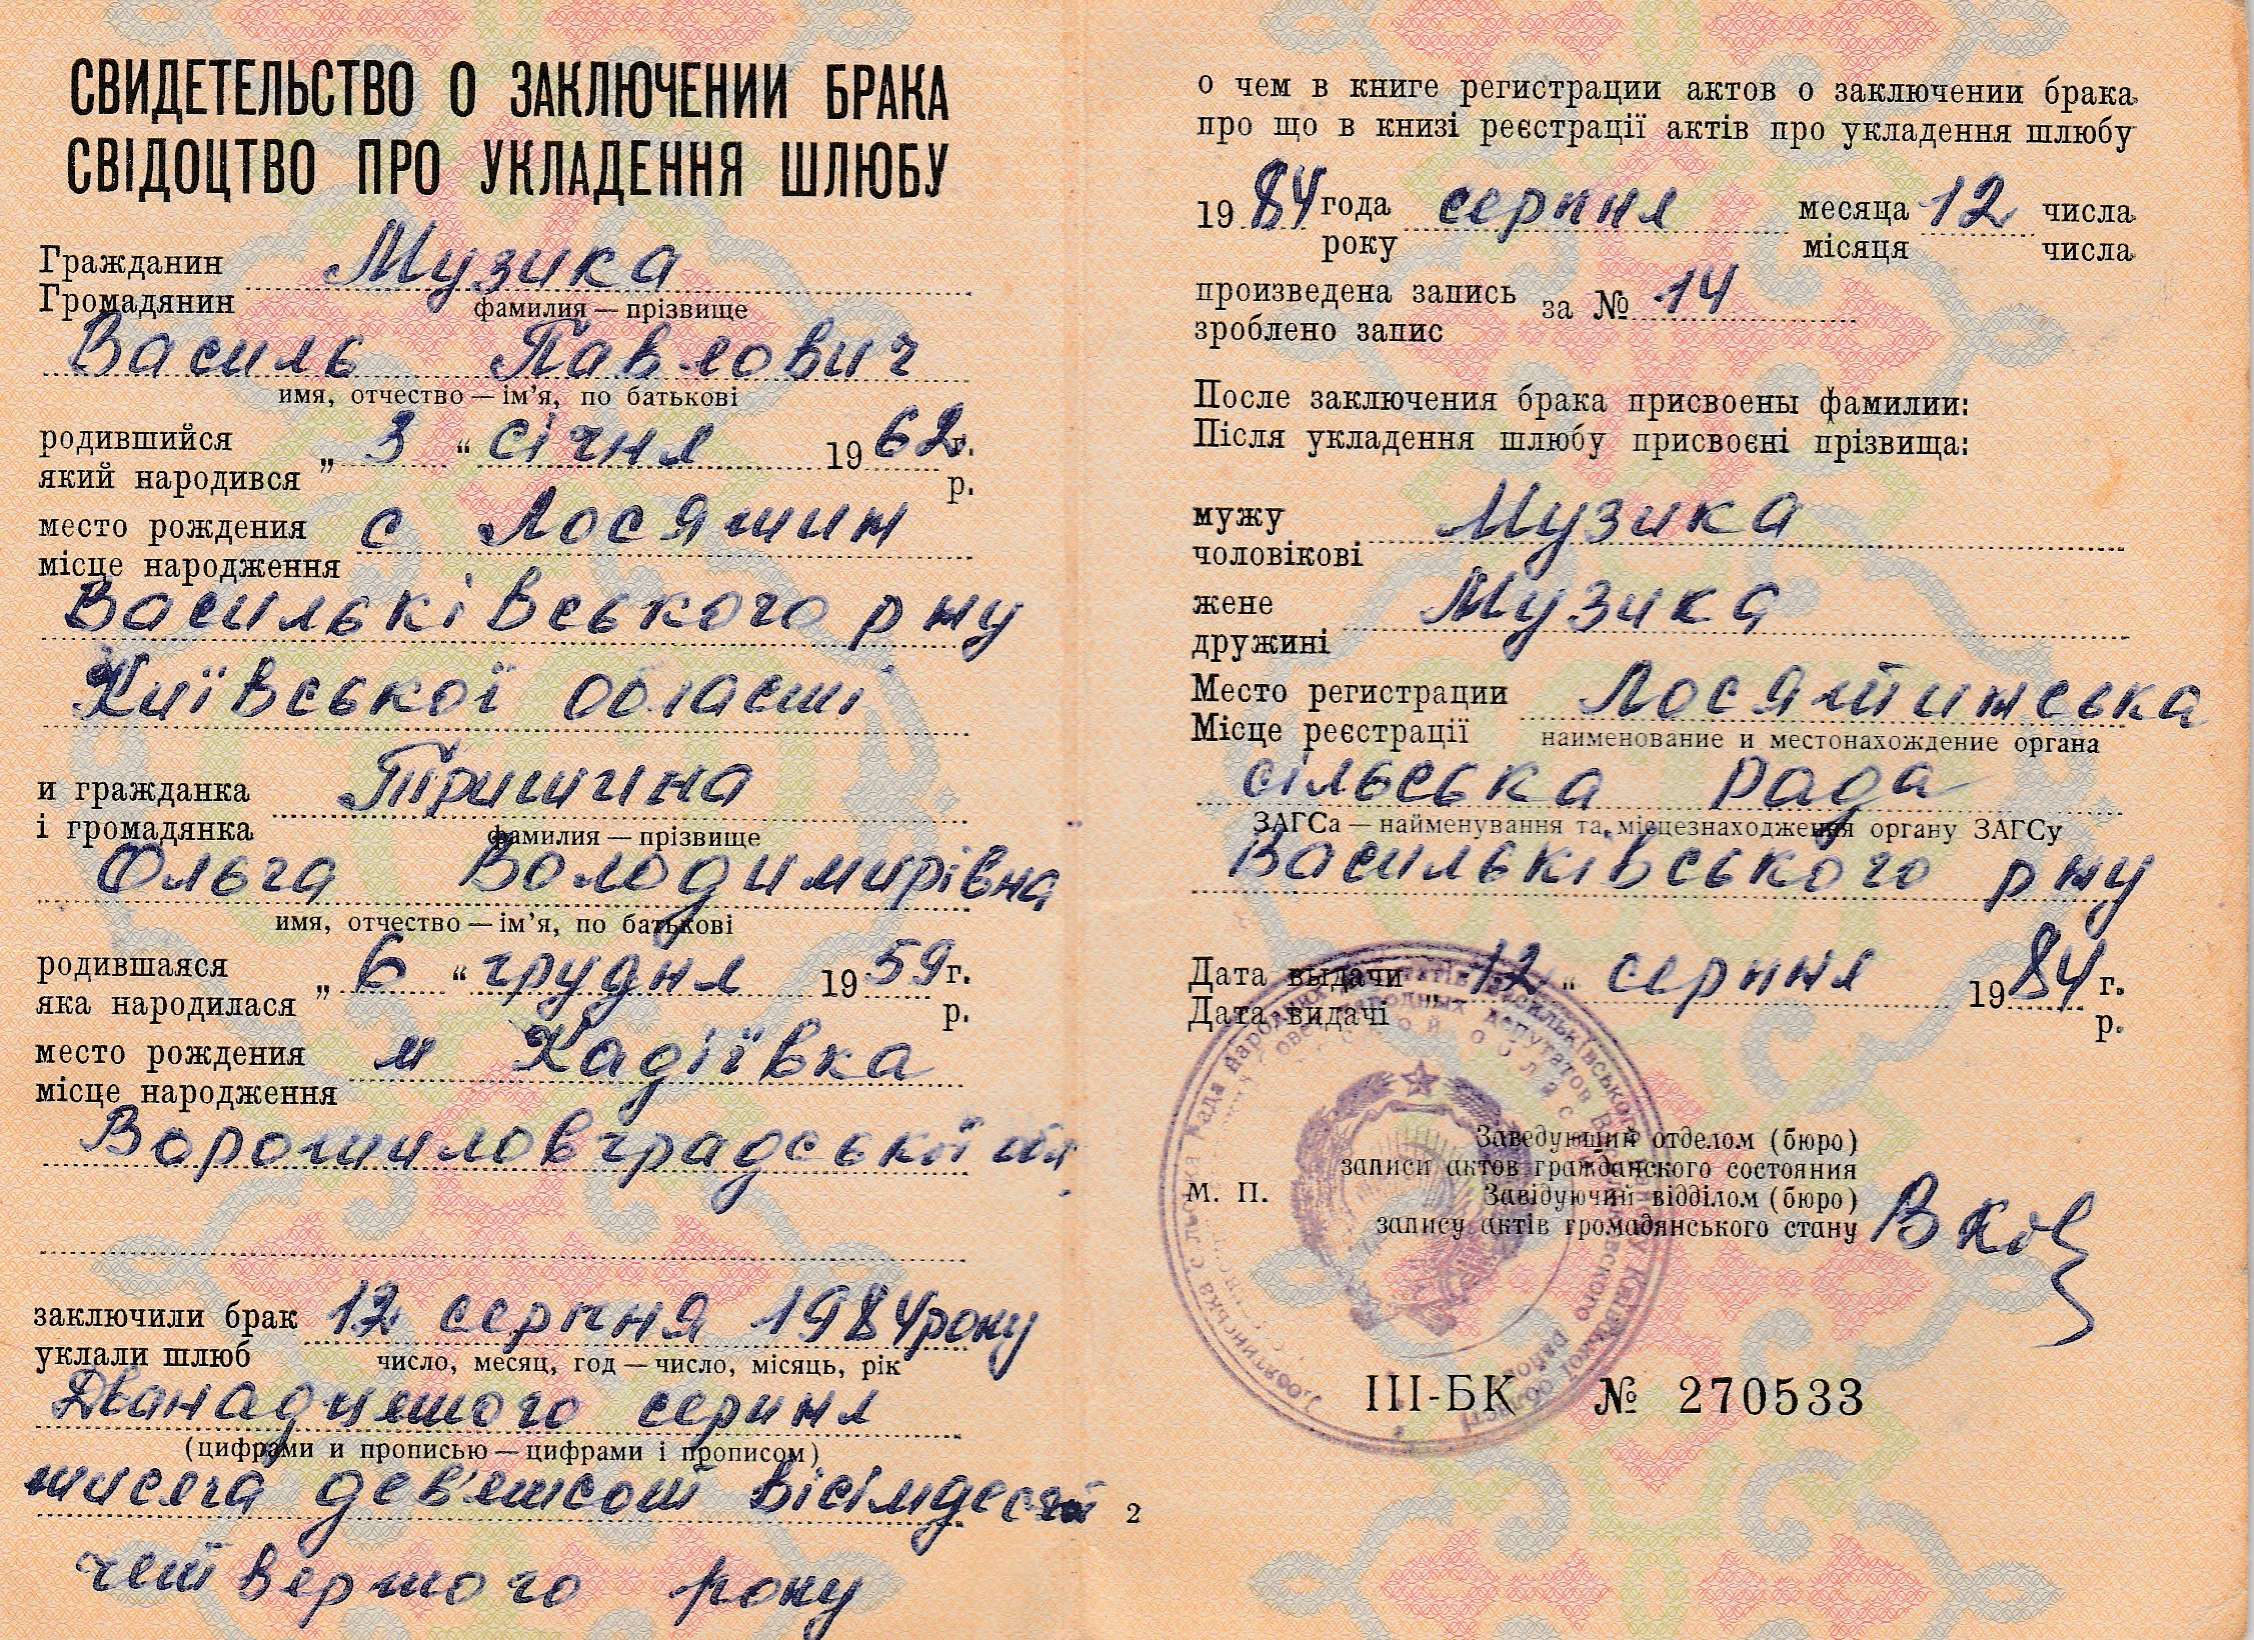 СВИДЕТЕЛЬСТВО О ЗАКЛЮЧЕНИИ БРАКА
СВІДОЦТВО ПРО УКЛАДЕННЯ ШЛЮБУ
Гражданин Музика
Громадянин фамилия — прізвище
Василь Павлович
имя, отчество — ім'я, по батькові
родившийся „ 3 “ січня 1962 г.
який народився р.
место рождения с Лосятин
місце народження
Васильківського р ну
Київської області
и гражданка Тришина
і громадянка фамилия — прізвище
Ольга Володимирівна
имя, отчество — ім'я, по батькові
родившаяся „ 6 “ грудня 1959 г.
яка народилася р.
место рождения м Кадіївка
місце народження
Ворошиловградської обл
заключили брак 12 серпня 1984 року
уклали шлюб число, месяц, год — число, місяць, рік
Дванадцятого серпня
(цифрами и прописью — цифрами і прописом)
тисяча дев'ятсот вісімдесят
четвертого року
2
о чем в книге регистрации актов о заключении брака
про що в книзі реєстрації актів про укладення шлюбу
1984 года серпня месяца 12 числа
року місяця числа
произведена запись за № 14
зроблено запис
После заключения брака присвоены фамилии:
Після укладення шлюбу присвоєні прізвища:
мужу Музика
чоловікові
жене Музика
дружині
Место регистрации Лосятинська
Місце реєстрації наименование и местонахождение органа
сільська рада
ЗАГСа — найменування та місцезнаходження органу ЗАГСу
Васильківського р ну
Дата выдачи „ 12 “ серпня 1984 г.
Дата видачі р.
Заведующий отделом (бюро)
записи актов гражданского состояния
М. П. Завідуючий відділом (бюро)
запису актів громадянського стану
III-БК № 270533